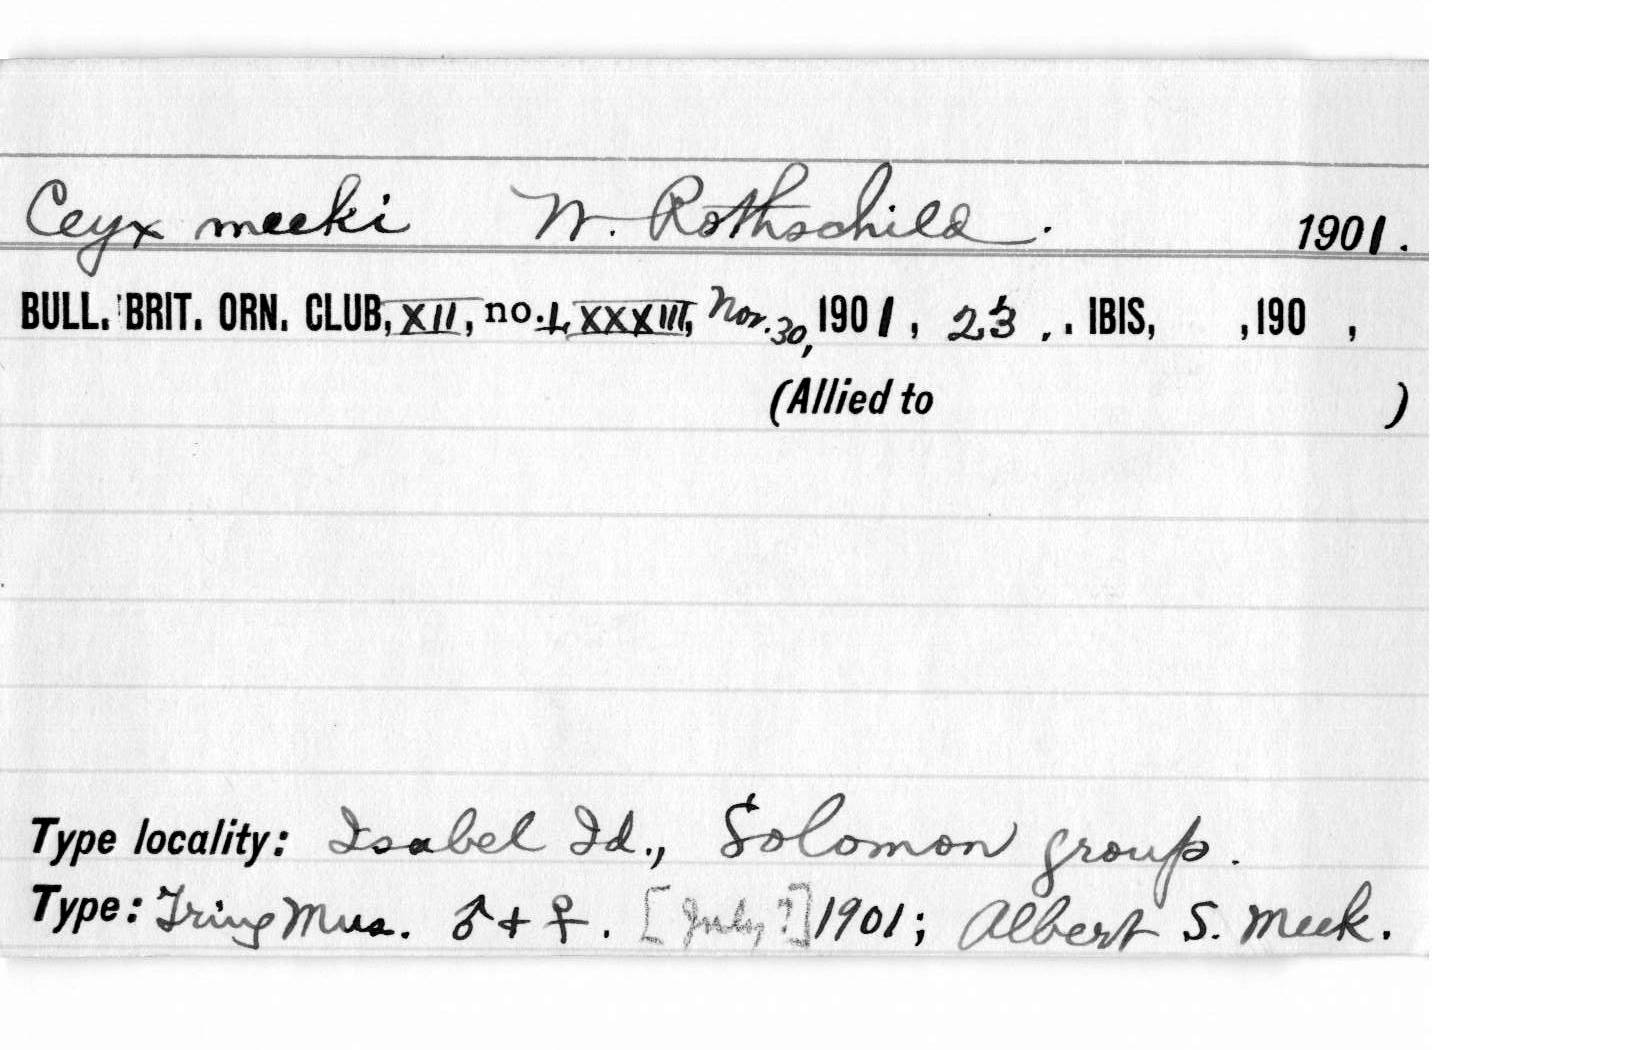 Ceyx meeki W. Rothschild. 1901.
BULL. BRIT. ORN. CLUB, XII, no. LXXXIII, Nov. 30, 1901, 23, . IBIS, ,190 ,
(Allied to )
Type locality: Isabel Id., Solomon group.
Type: Tring Mus. ♂ + ♀. [July?] 1901; Albert S. Meek.